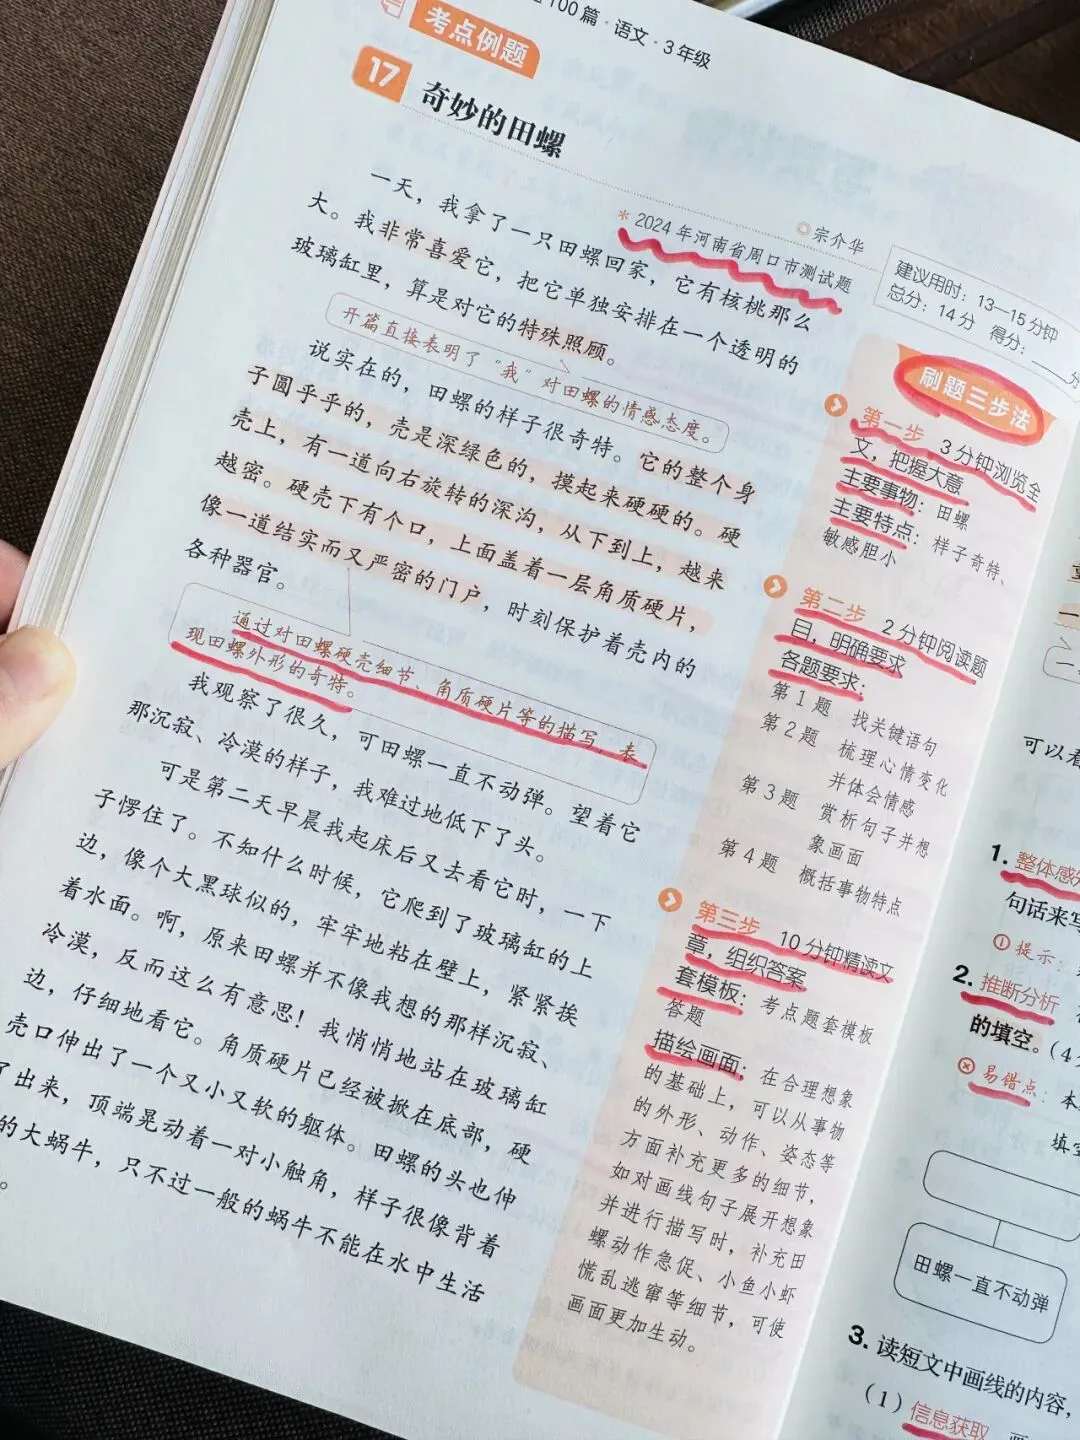 100篇·语文·3年级
考点例题
17 奇妙的田螺
◎宗介华
*2024年河南省周口市测试题
建议用时：13—15分钟
总分：14分 得分：____分
一天，我拿了一只田螺回家，它有核桃那么
大。我非常喜爱它，把它单独安排在一个透明的
玻璃缸里，算是对它的特殊照顾。
开篇直接表明了“我”对田螺的情感态度。
说实在的，田螺的样子很奇特。它的整个身
子圆乎乎的，壳是深绿色的，摸起来硬硬的。硬
壳上，有一道向右旋转的深沟，从下到上，越来
越密。硬壳下有个口，上面盖着一层角质硬片，
像一道结实而又严密的门户，时刻保护着壳内的
各种器官。
通过对田螺硬壳细节、角质硬片等的描写，表
现田螺外形的奇特。
我观察了很久，可田螺一直不动弹。望着它
那沉寂、冷漠的样子，我难过地低下了头。
可是第二天早晨我起床后又去看它时，一下
子愣住了。不知什么时候，它爬到了玻璃缸的上
边，像个大黑球似的，牢牢地粘在壁上，紧紧挨
着水面。啊，原来田螺并不像我想的那样沉寂、
冷漠，反而这么有意思！我悄悄地站在玻璃缸
边，仔细地看它。角质硬片已经被掀在底部，硬
壳口伸出了一个又小又软的躯体。田螺的头也伸
了出来，顶端晃动着一对小触角，样子很像背着
的大蜗牛，只不过一般的蜗牛不能在水中生活
。
刷题三步法
第一步 3分钟浏览全
文，把握大意
主要事物：田螺
主要特点：样子奇特、
敏感胆小
第二步 2分钟阅读题
目，明确要求
各题要求：
第1题 找关键语句
第2题 梳理心情变化
并体会情感
第3题 赏析句子并想
象画面
第4题 概括事物特点
第三步 10分钟精读文
章，组织答案
套模板：考点题套模板
答题
描绘画面：在合理想象
的基础上，可以从事物
的外形、动作、姿态等
方面补充更多的细节，
如对画线句子展开想象
并进行描写时，补充田
螺动作急促、小鱼小虾
慌乱逃窜等细节，可使
画面更加生动。
可以看
1. 整体感
句话来写
提示：
2. 推断分析
的填空。（4
易错点：本
填空
田螺一直不动弹
3. 读短文中画线的内容，
（1）信息获取